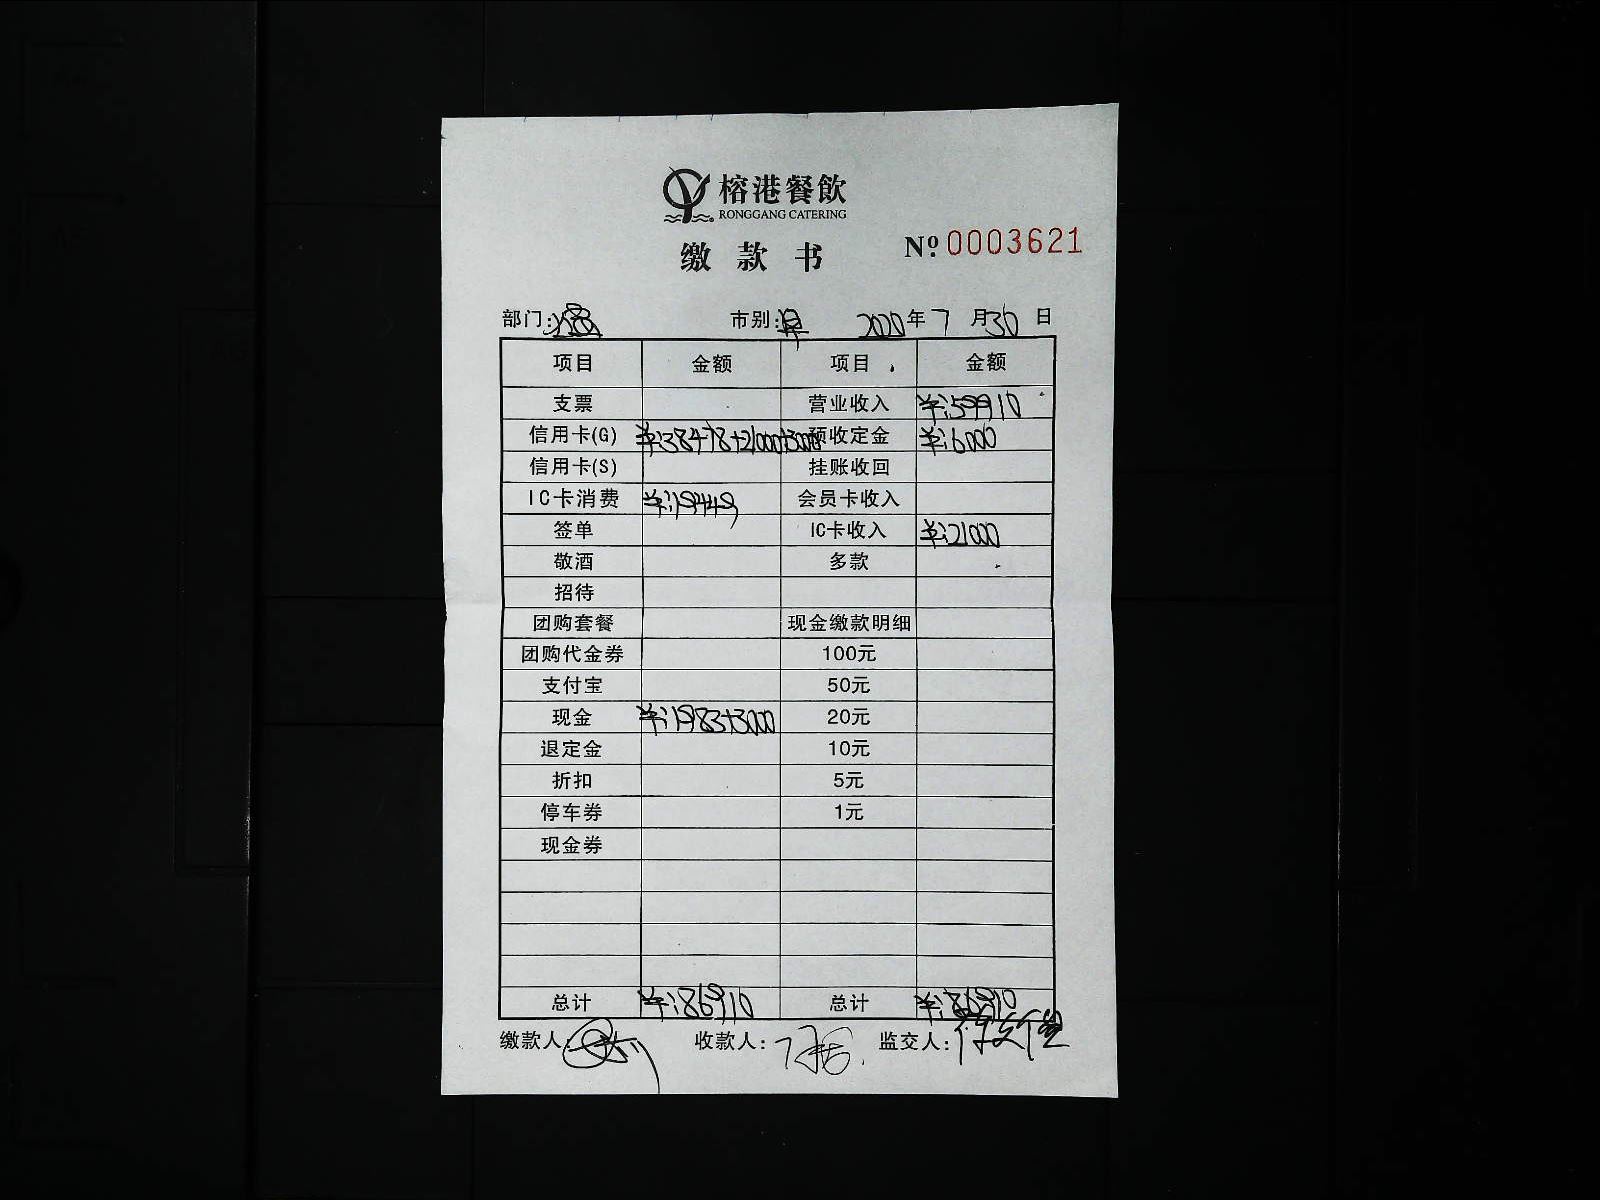 榕港餐飲
RONGGANG CATERING
缴款书
№ 0003621
部门: 市别:早 2020年7月30日
项目 金额 项目 金额
支票 营业收入 ¥:59910
信用卡(G) ¥:38478+21000+3000 预收定金 ¥:6000
信用卡(S) 挂账收回
IC卡消费 ¥:19449 会员卡收入
签单 IC卡收入 ¥:21000
敬酒 多款
招待
团购套餐 现金缴款明细
团购代金券 100元
支付宝 50元
现金 ¥:1983+3000 20元
退定金 10元
折扣 5元
停车券 1元
现金券
总计 ¥:86910 总计 ¥:86910
缴款人: 收款人: 监交人: